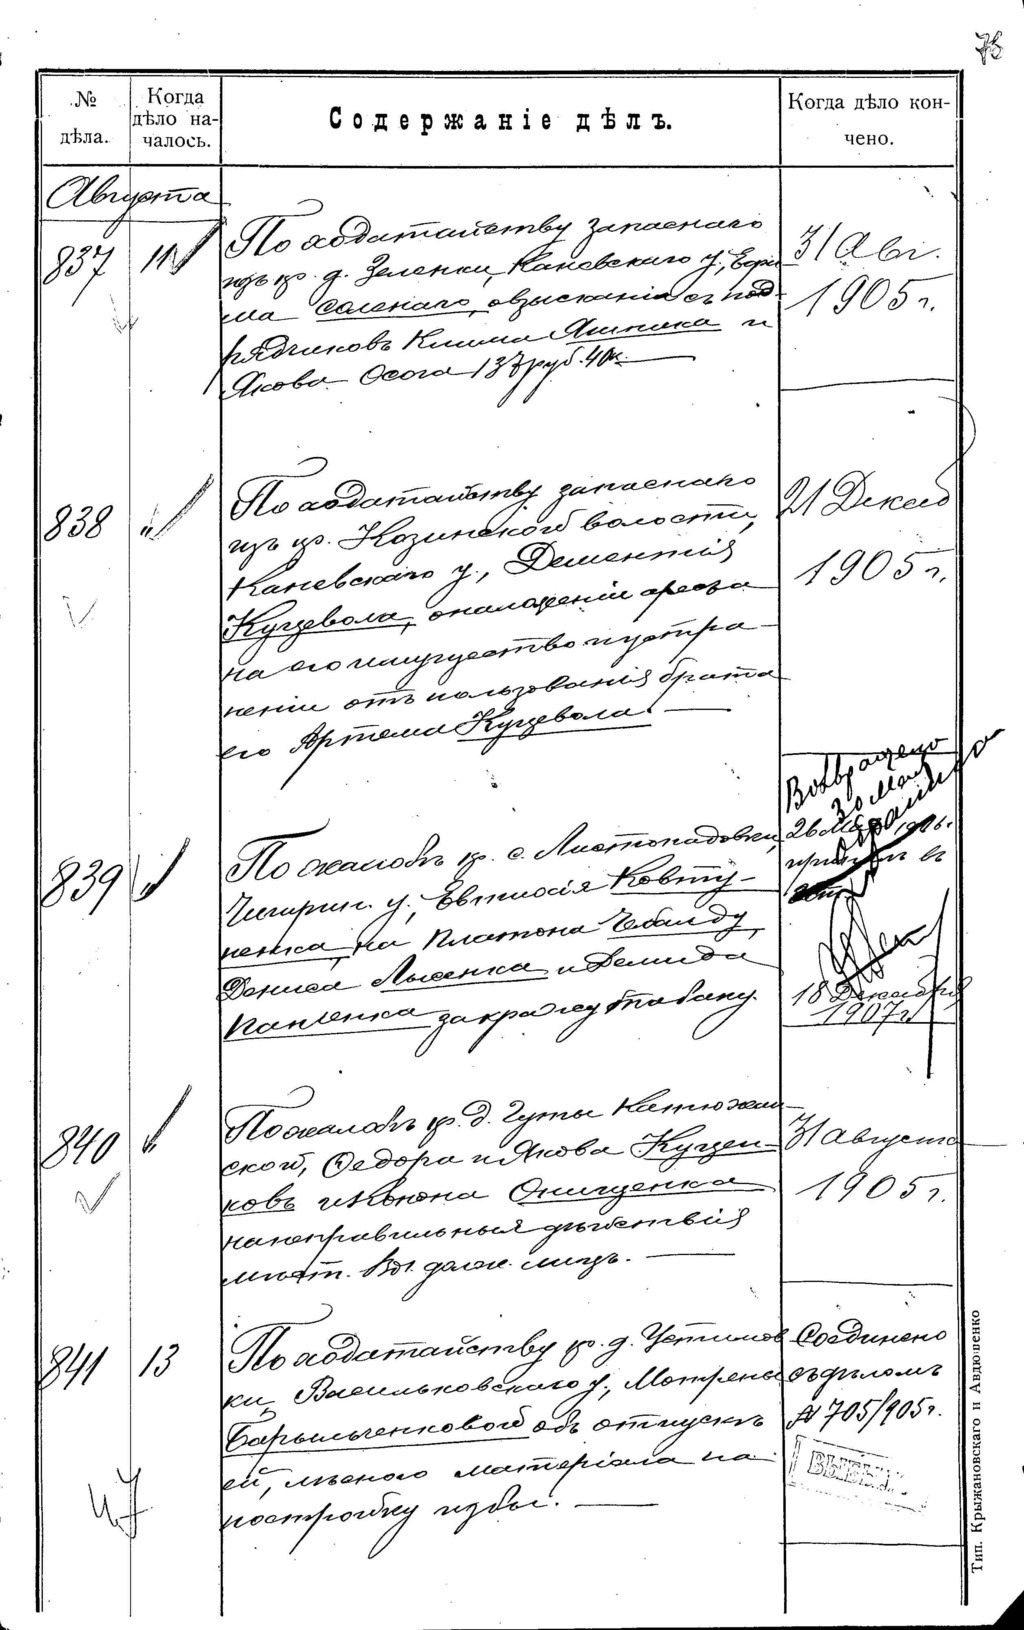 75
№ дѣла.
Когда дѣло на-
чалось.
Содержаніе дѣлъ.
Когда дѣло кон-
чено.
Августа
837
11
По ходатайству запаснаго
изъ кр. д. Зеленки, Каневскаго у., Ефи-
ма Соленаго, о взысканіи съ под-
рядчиковъ Клима Яшника и
Якова Осога 137 руб. 40 к.
31 Авг.
1905 г.
838
"
По ходатайству запаснаго
изъ кр. Козинской волости,
Каневскаго у., Дементія
Куцевола, о наложеніи ареста
на его имущество и устра-
неніи отъ пользованія брата
его Артема Куцевола.
21 Декаб
1905 г.
839
"
По жалобѣ кр. с. Листопадовки,
Чигирин. у., Евтихія Ковту-
ненка, на Платона Чебалду,
Дениса Лысенка и Демида
Панченка за кражу табаку.
Возвращено
30 Мая
26 1906 г.
18 Декабря
1907 г.
840
"
По жалобѣ кр. д. Гуты Катюжан-
ской, Федора и Якова Куцен-
ковъ и Конона Онищенка
на неправильныя дѣйствія
мѣстн. Вол. долж. лицъ.
31 Августа
1905 г.
841
13
По ходатайству кр. д. Устимов
ки, Васильковскаго у., Матрены
Барыльченковой объ отпускѣ
ей, лѣсного матеріала на
постройку избы.
Соединено
съ дѣломъ
№ 705/905 г.
Тип. Крыжановскаго и Авдюшенко